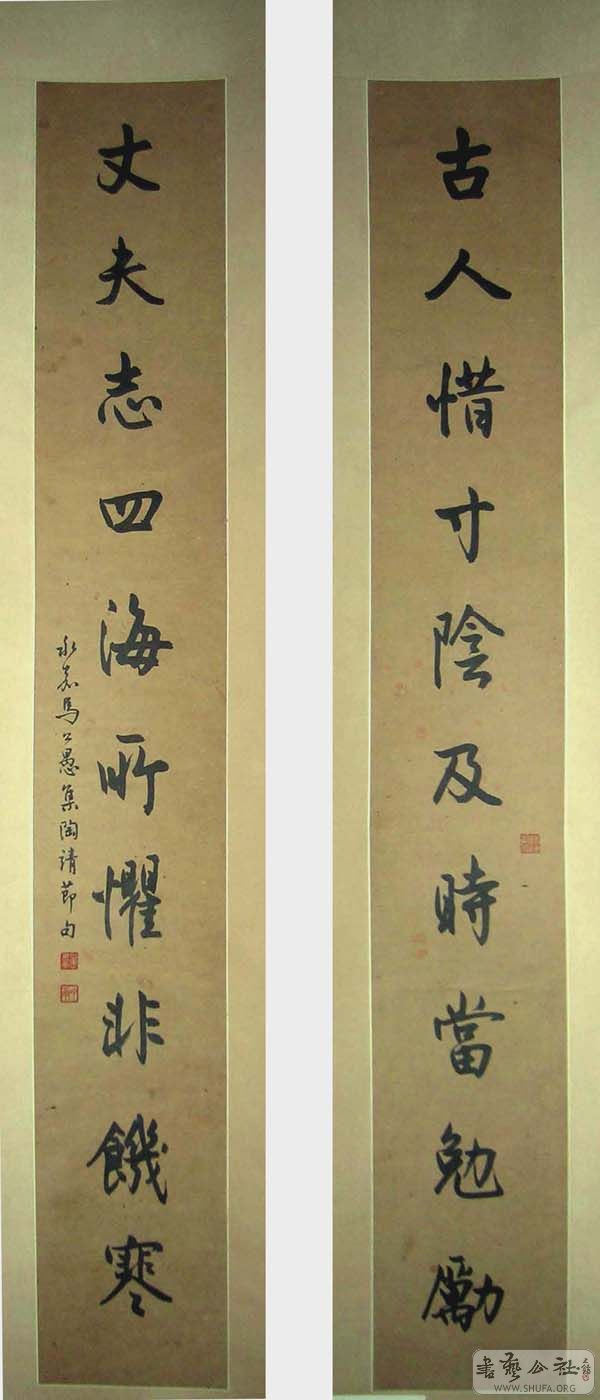 古人惜寸陰及時當勉勵
丈夫志四海所懼非饑寒
永嘉馬公愚集陶靖節句
書藝公社
WWW.SHUFA.ORG